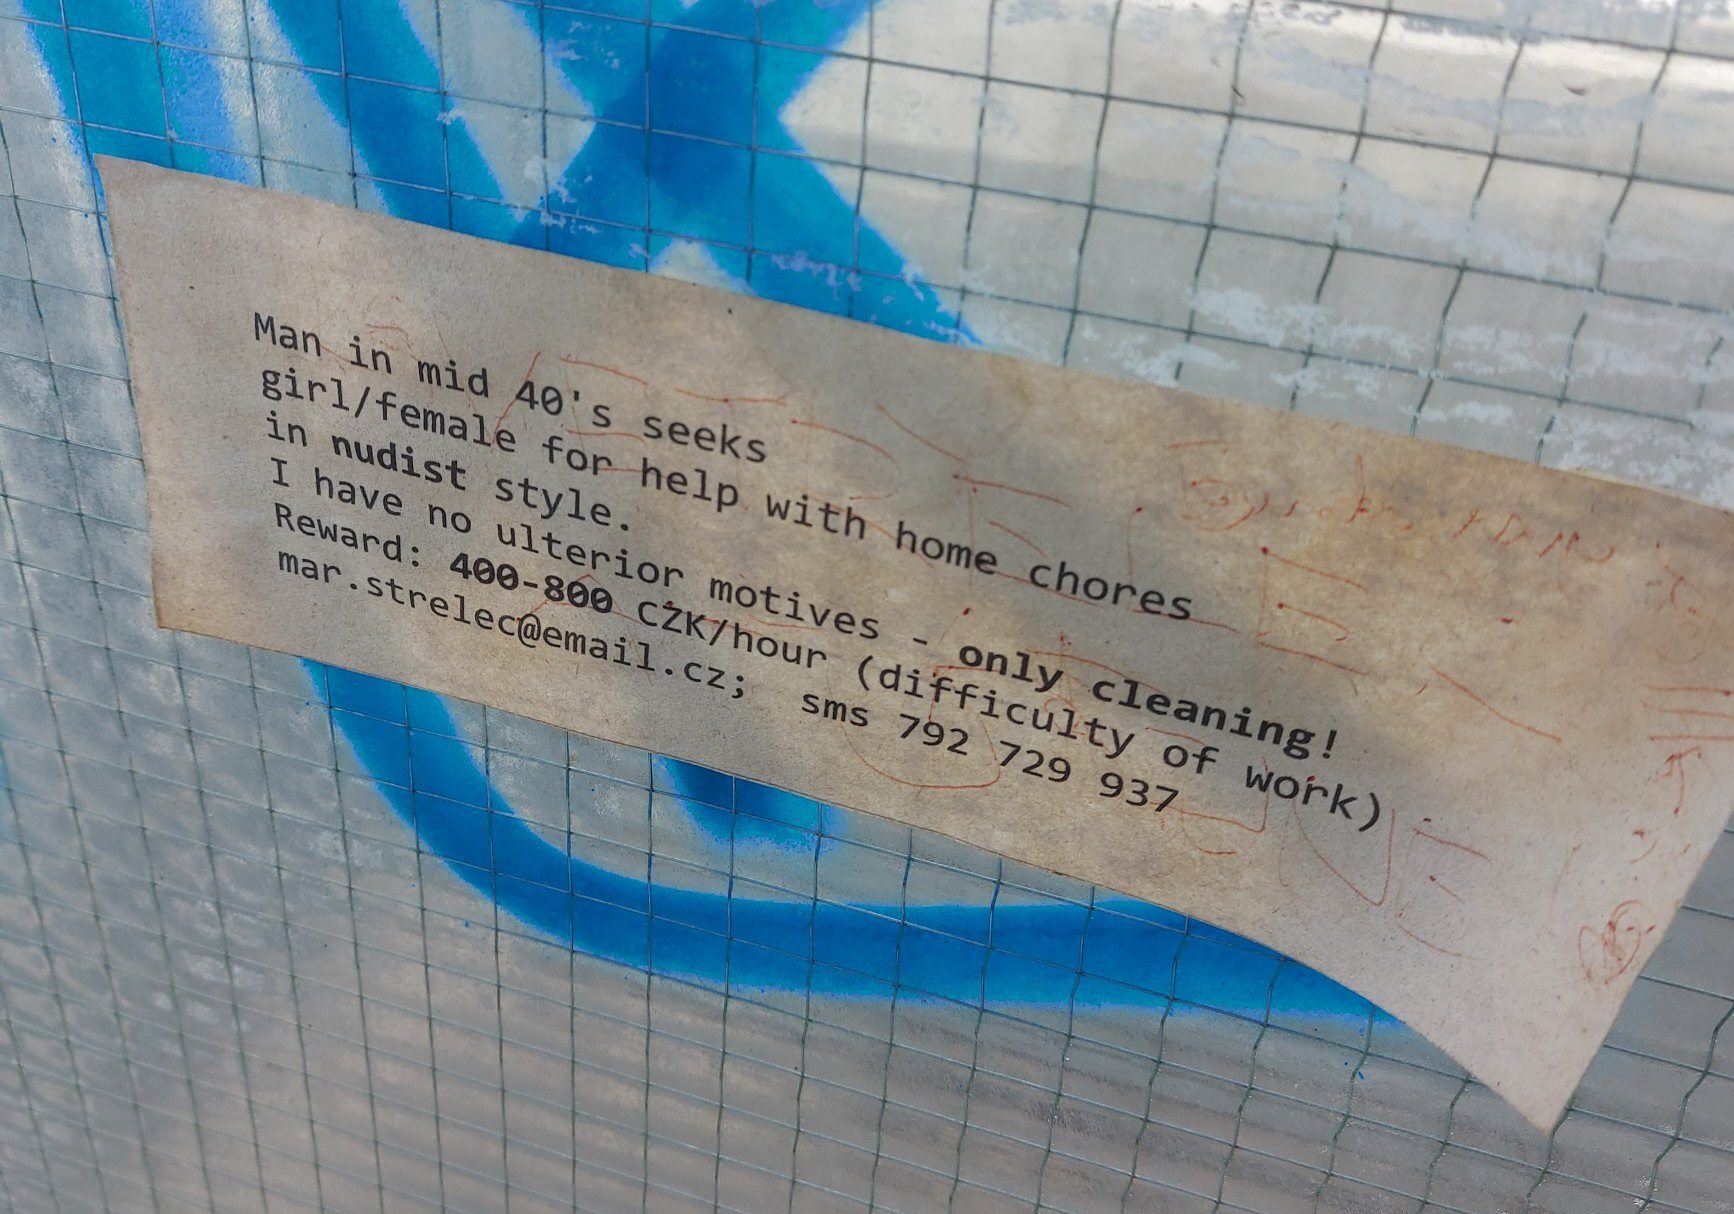 Man in mid 40's seeks
girl/female for help with home chores
in nudist style.
I have no ulterior motives - only cleaning!
Reward: 400-800 CZK/hour (difficulty of work)
mar.strelec@email.cz; sms 792 729 937